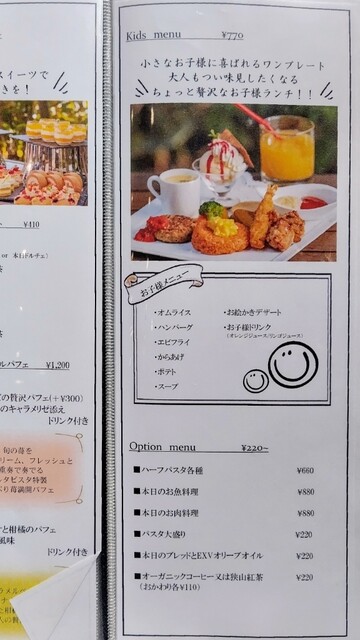 スイーツで
きを！
¥410
or 本日ドルチェ）
ルパフェ ¥1,200
の贅沢パフェ(＋¥300)
のキャラメリゼ添え
ドリンク付き
旬の苺を
リーム、フレッシュと
重奏で奏でる
タビスタ特製
り苺満開パフェ
と柑橘のパフェ
風味
ドリンク付き
Kids menu ¥770
小さなお子様に喜ばれるワンプレート
大人もつい味見したくなる
ちょっと贅沢なお子様ランチ！！
お子様メニュー
・オムライス
・ハンバーグ
・エビフライ
・からあげ
・ポテト
・スープ
・お絵かきデザート
・お子様ドリンク
（オレンジジュース/リンゴジュース）
Option menu ¥220~
■ハーフパスタ各種 ¥660
■本日のお魚料理 ¥880
■本日のお肉料理 ¥880
■パスタ大盛り ¥220
■本日のブレッドとEXVオリーブオイル ¥220
■オーガニックコーヒー又は狭山紅茶 ¥220
（おかわり各¥110）